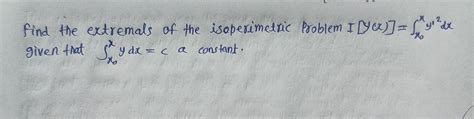 find the extremals of the isoperimetric Problem I[y(x)] = ∫_{x₀}^{x} y'² dx
given that ∫_{x₀}^{x} y dx = c a constant.